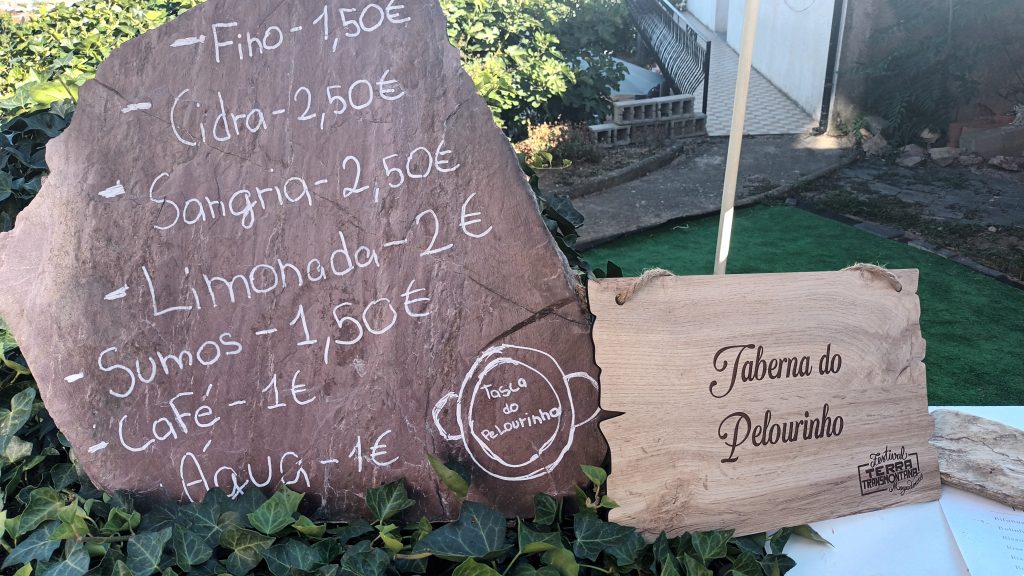 - Fino - 1,50€
- Cidra - 2,50€
- Sangria - 2,50€
- Limonada - 2€
- Sumos - 1,50€
- Café - 1€
Água - 1€
Tasca
do
Pelourinho
Taberna do
Pelourinho
Festival
TERRA
TRANSMONTANA